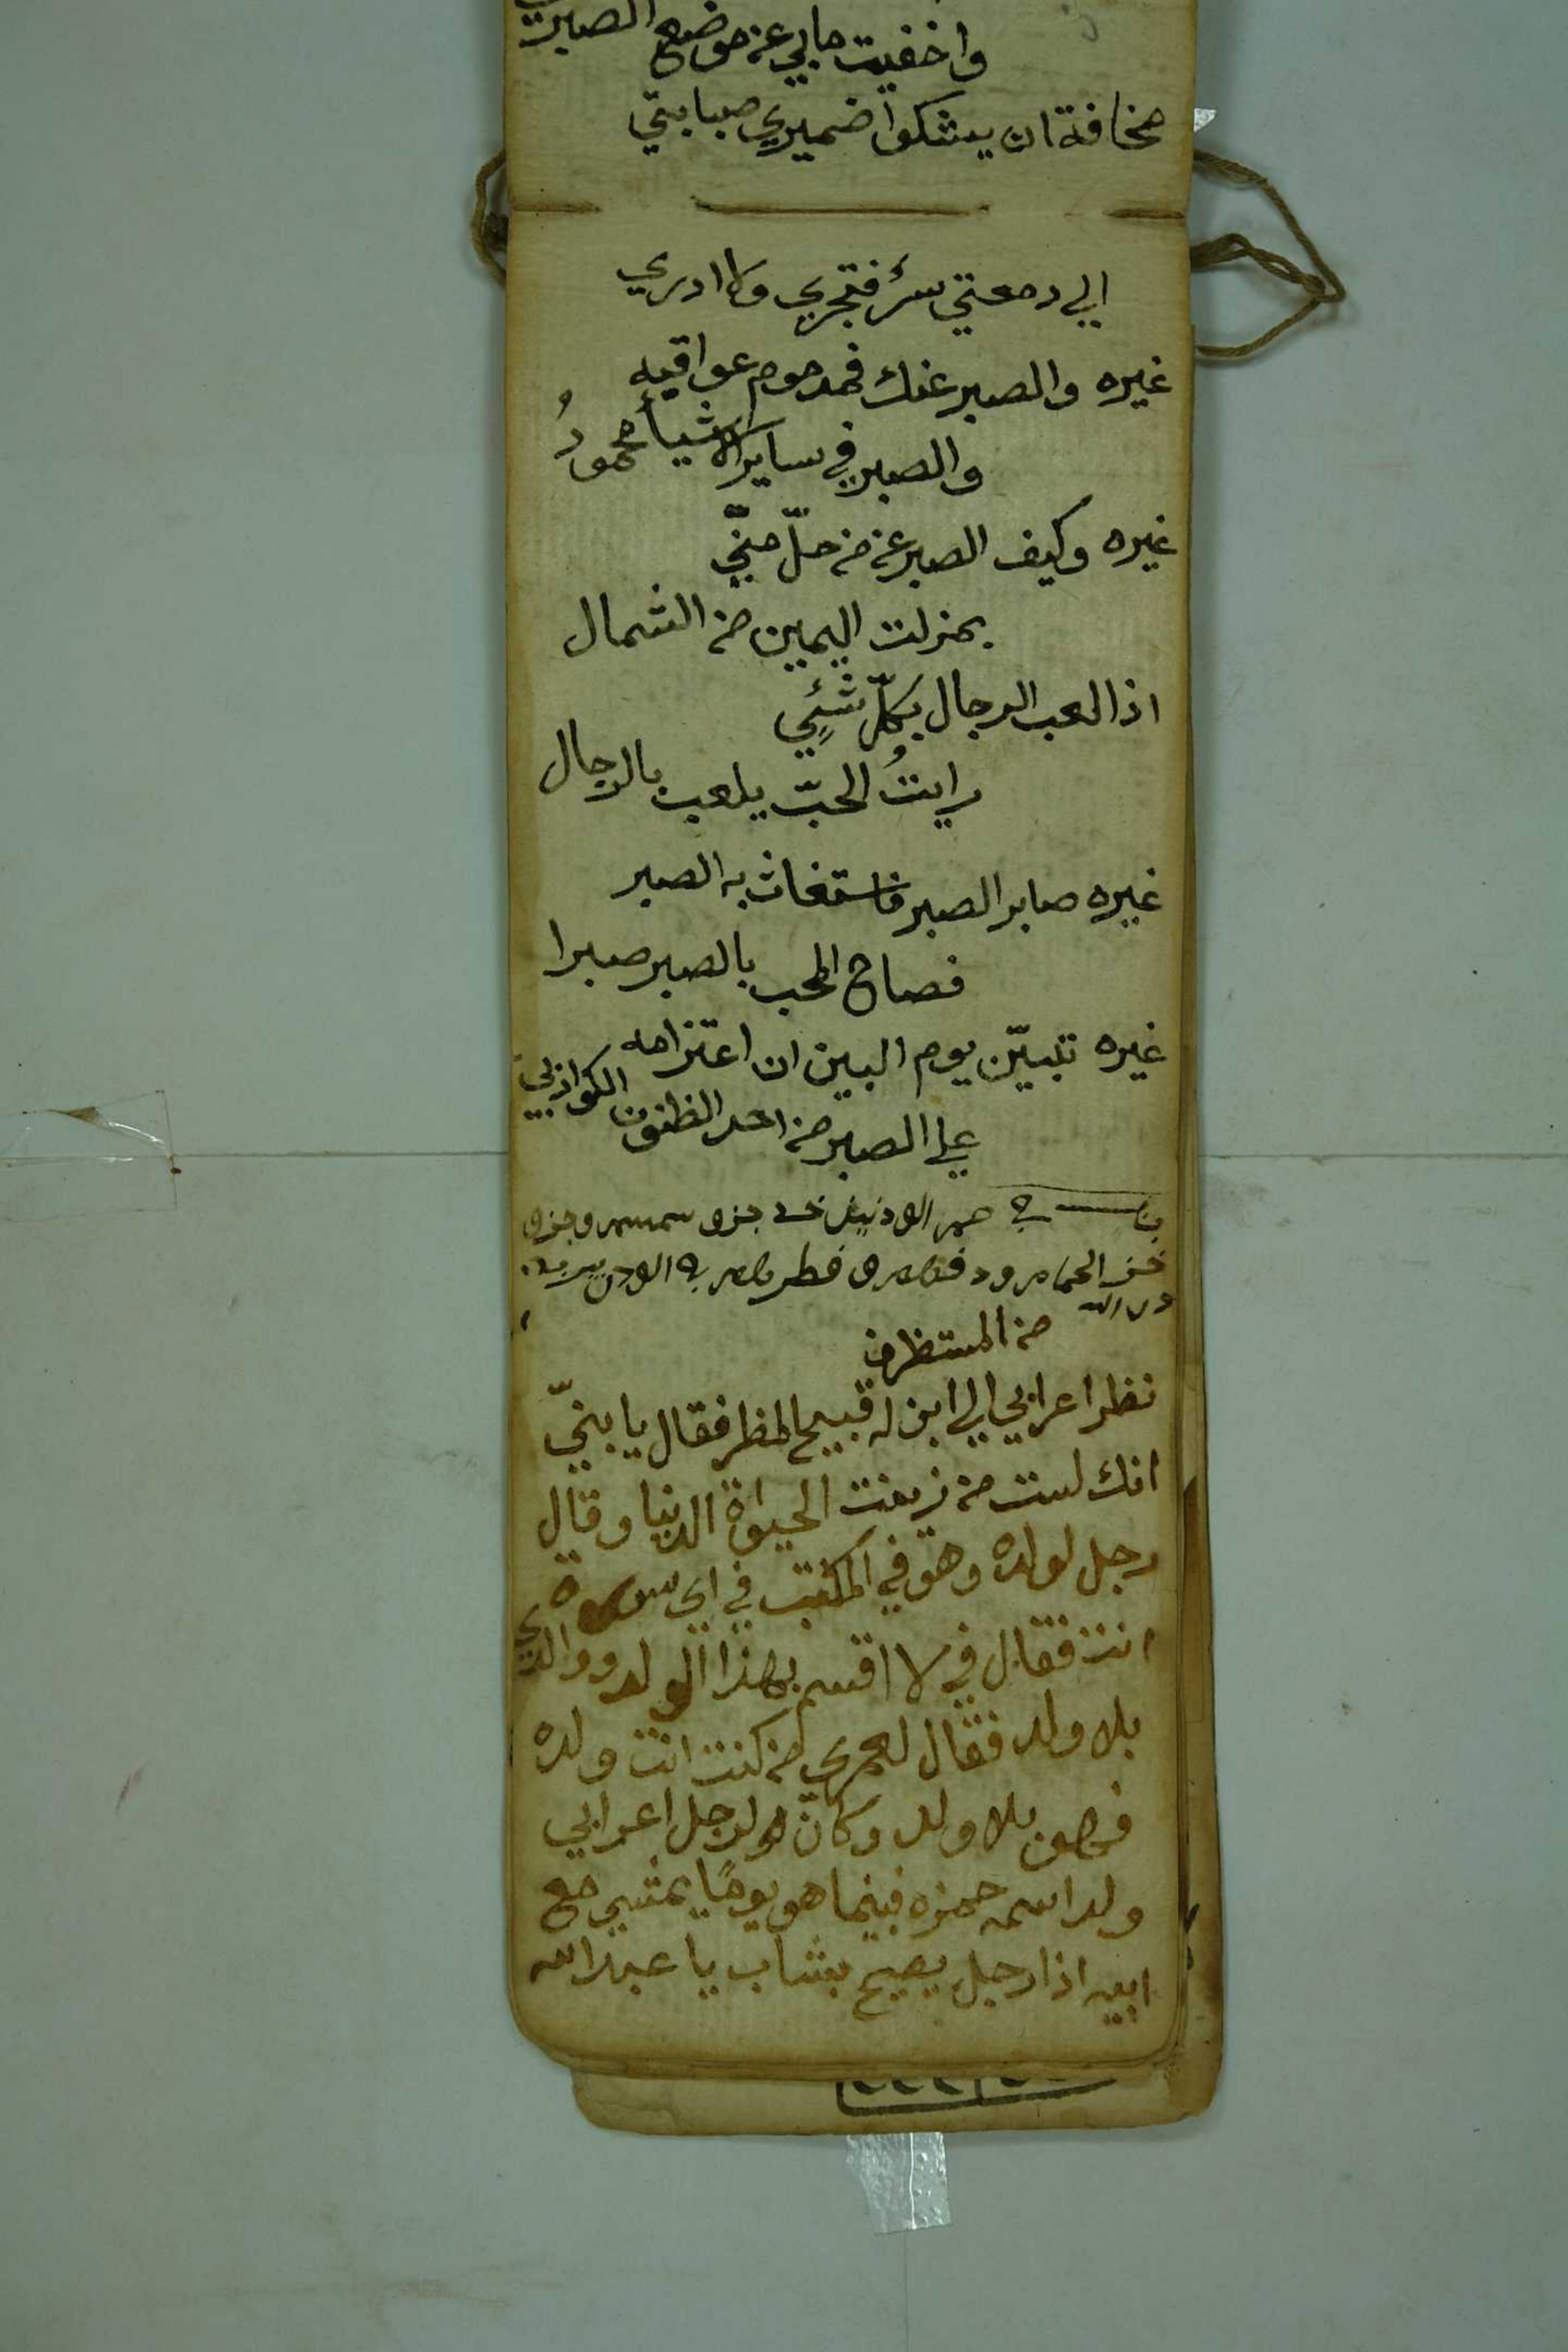 واخفيت مابي عن موضع الصبر
مخافة ان يشكوا ضميري صبابتي
الي دمعتي سرّ فتجري ولا ادري
غيره والصبر عنك فمدموم عواقبه
والصبر في ساير الاشيأ محمودُ
غيره وكيف الصبر عن من حلّ منّي
بمنزلت اليمين من الشمال
اذا لعب الرجال بكلّ شئٍي
رايتُ الحبّ يلعب بالرجال
غيره صابر الصبر فاستغاث به الصبر
فصاح المحب بالصبر صبرا
غيره تبيّن يوم البين ان اعتزامه
علي الصبر من احد الظنون الكواذبي
من المستظرف
نظر اعرابي الي ابن له قبيح المنظر فقال يا بنيّ
انك لست من زينت الحيواة الدنيا وقال
رجل لولده وهو في المكتب في اي سورة
انت فقال في لا اقسم بهذا الولد ووالدي
بلا ولد فقال لعمري من كنت انت ولده
فهو بلا ولد وكان لرجل اعرابي
ولد اسمه حمزه فبينما هو يومًا يمشي مع
ابيه اذا رجل يصيح بشاب يا عبد الله